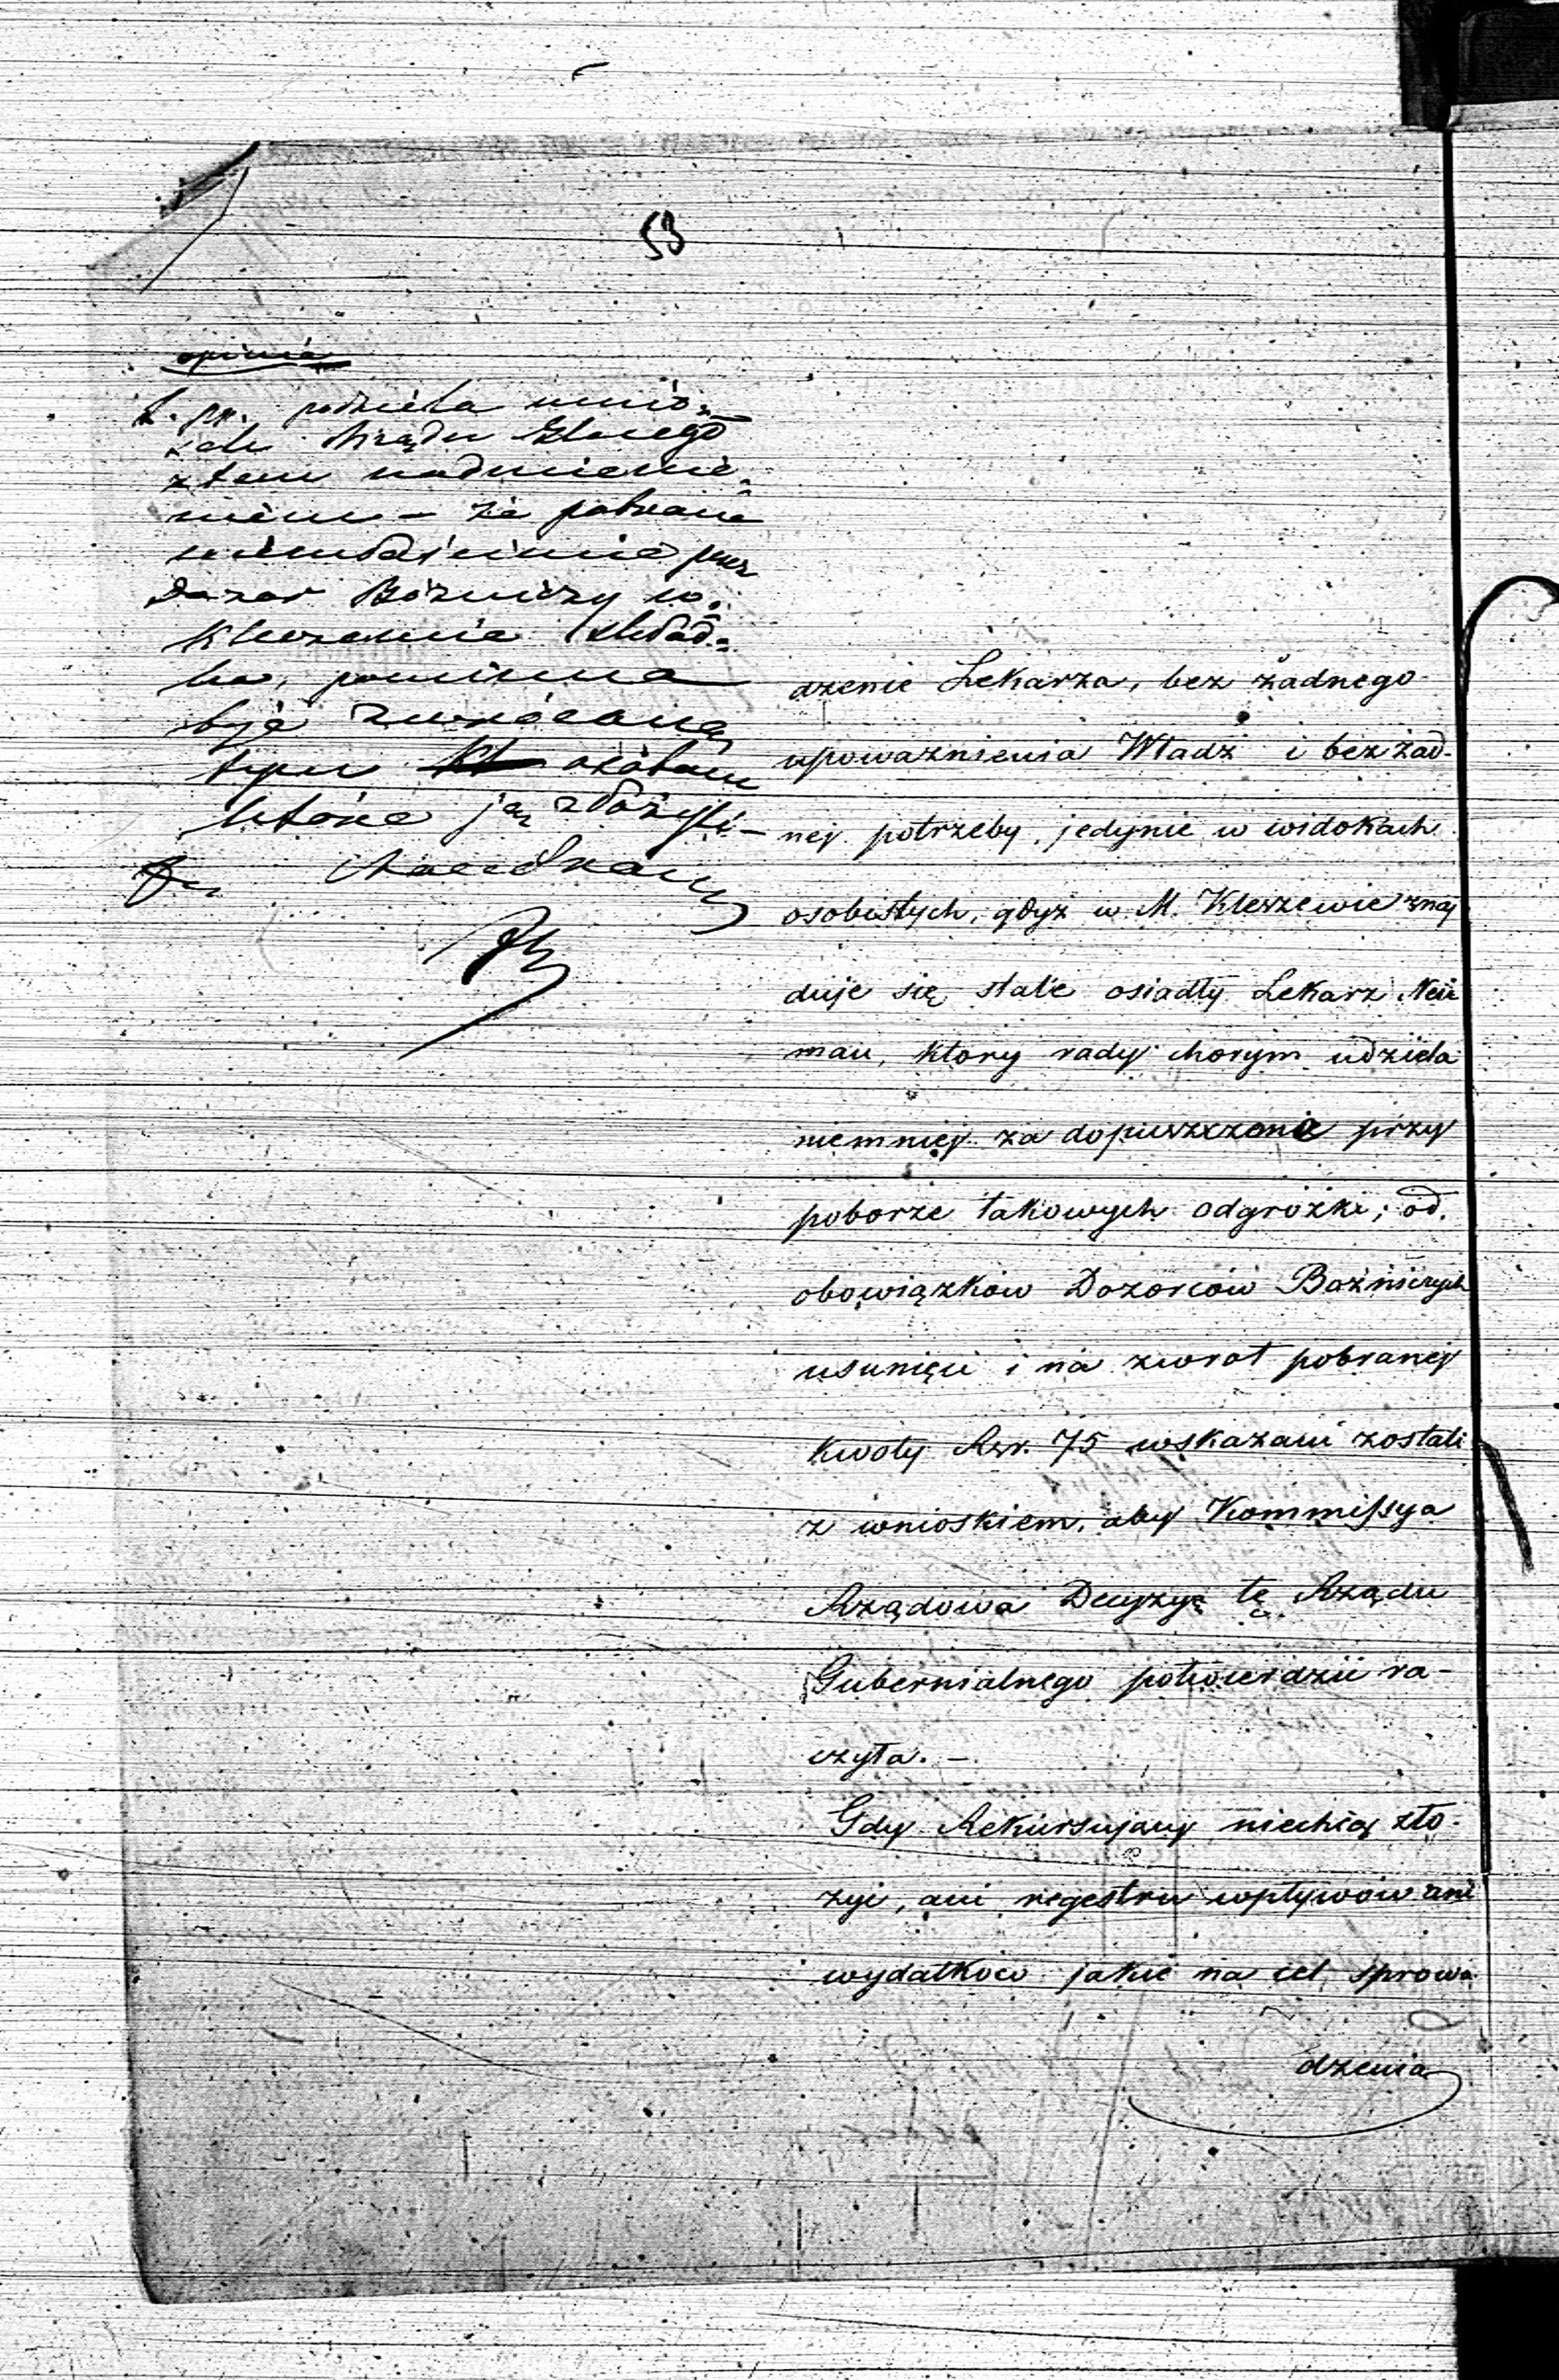 53
opinia
podziela wnio-
sek Rządu Gbnego
z tem nadmienie-
niem – że pobrana
niewłaściwie przez
Dozór Bóżniczy w
Kleczewie składk-
ka, powinna
być zwróconą
tym osobom
które ją złożyły –
dzenie Lekarza, bez żadnego
upoważnienia Władz i bez żad-
nej potrzeby, jedynie w widokach
osobistych, gdyż w M. Kleszewie znaj
duje się stale osiadły Lekarz Neu
man, ktory rady chorym udziela
niemniej za dopuszczenie przy
poborze takowych odgrożki; od.
obowiązków Dozorców Bożniczych
usunięci i na zwrot pobranej
kwoty Rsr. 75 wskazani zostali
z wnioskiem, aby Kommissya
Rządowa Decyzyę tę Rządu
Gubernialnego potwierdzić ra-
czyła. –
Gdy Rekursujący niechcą zło-
żyć, ani regestru wpływów ani
wydatków jakie na cel sprowa
dzenia